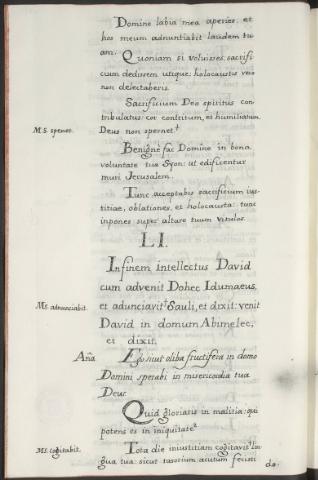 Domine labia mea aperies: et
hos meum adnuntiabit laudem tu
am.
Quoniam si voluisses sacrifi
cium dedissem utique: holocaustis vero
non delectaberis.
Sacrificium Deo spiritus con
tribulatus: cor contritum, et humiliatum
M.S. spernet. Deus non spernet.†
Benigne fac Domine in bona
voluntate tua Syon: ut edificentur
muri Jerusalem.
Tunc acceptabis sacrifitium ius
titiae, oblationes, et holocausta: tunc
inpones super altare tuum vitulos.
LI.
Infinem intellectus David
cum advenit Dohec Idumaeus,
Ms. adnunciabit. et adunciavit† Sauli, et dixit: venit
David in domum Abimelec,
et dixit.
Aña Ego sicut oliba fructifera in domo
Domini sperabi in misericordia tua
Deus.
Quid gloriaris in malitia: qui
potens es in iniquitate?
M.S. cogitabit. Tota die iniustitiam cogitavit† lin
gua tua: sicut
acutum fecisti
do-